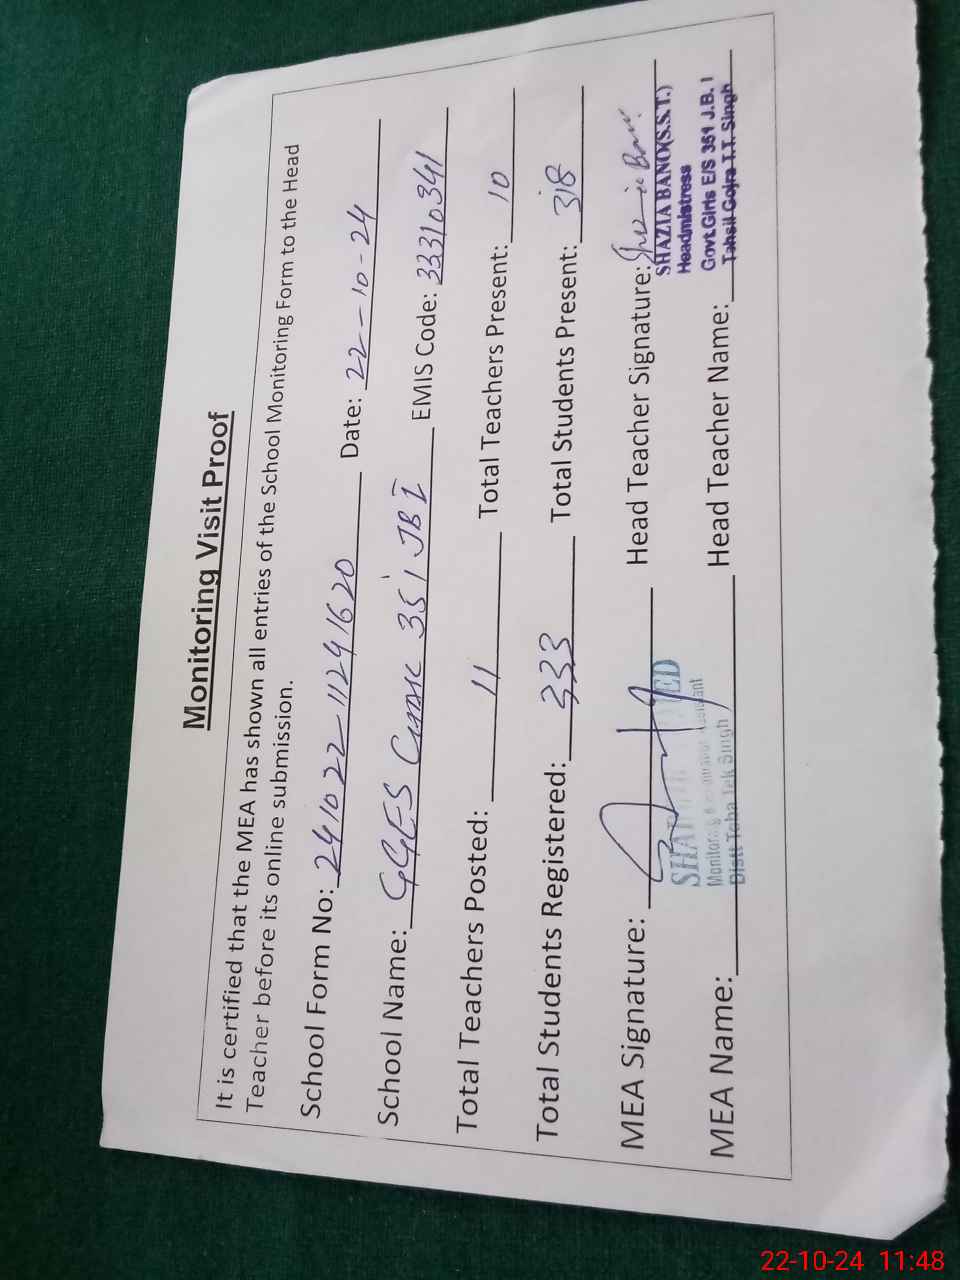 Monitoring Visit Proof
It is certified that the MEA has shown all entries of the School Monitoring Form to the Head
Teacher before its online submission.
School Form No: 241022-11241620 Date: 22-10-24
School Name: GGES 351 JB I EMIS Code: 33310341
Total Teachers Posted: 11 Total Teachers Present: 10
Total Students Registered: 333 Total Students Present: 318
MEA Signature: Head Teacher Signature:
SHAZIA BANO(S.S.T.)
Headmistress
Govt.Girls E/S 351 J.B. I
Tahsil Gojra T.T. Singh
Monitoring Assistant
Distt Toba Tek Singh
MEA Name: Head Teacher Name:
22-10-24 11:48